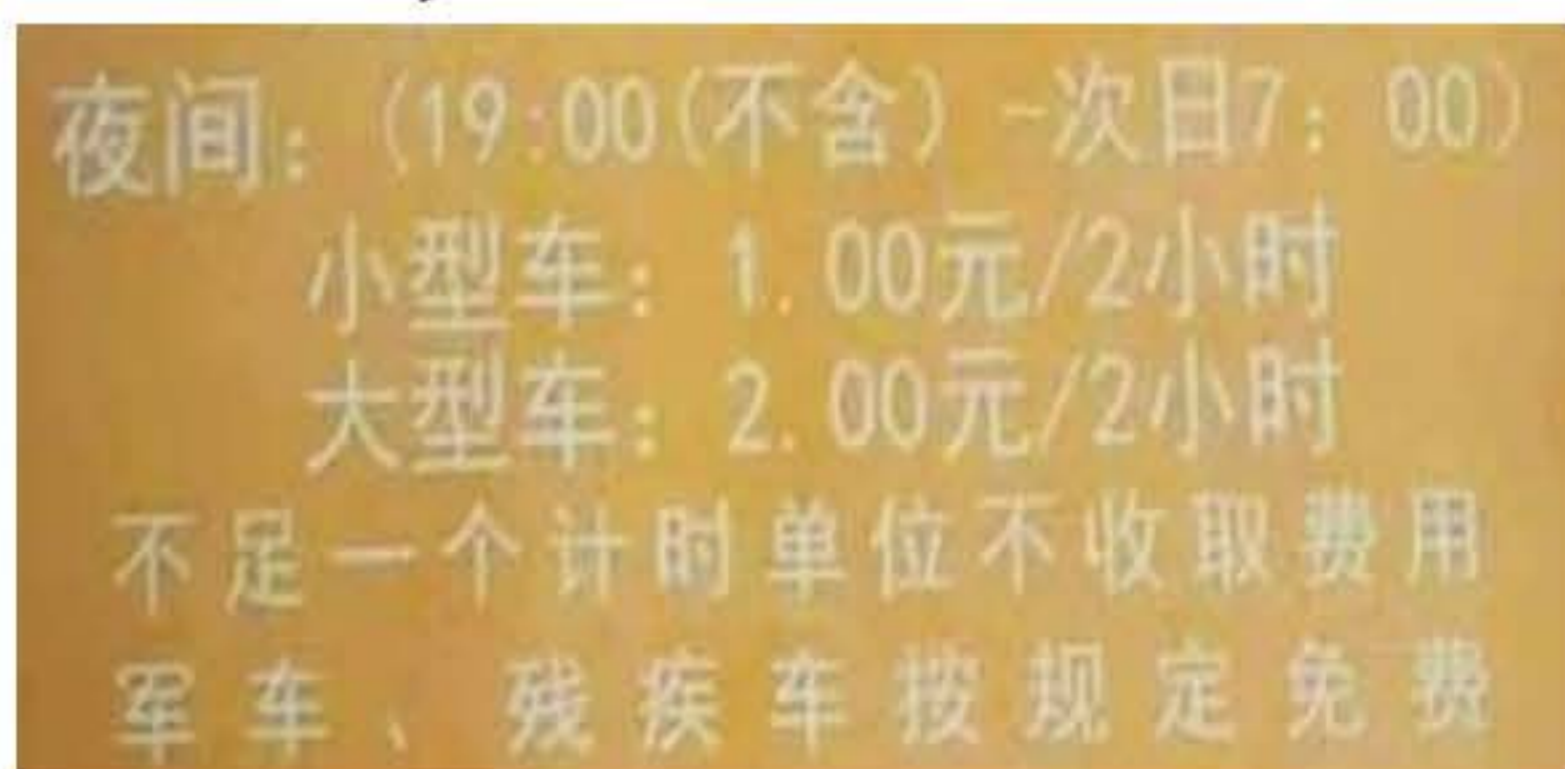 夜间：(19:00(不含)-次日7：00)
小型车：1.00元/2小时
大型车：2.00元/2小时
不足一个计时单位不收取费用
军车、残疾车按规定免费